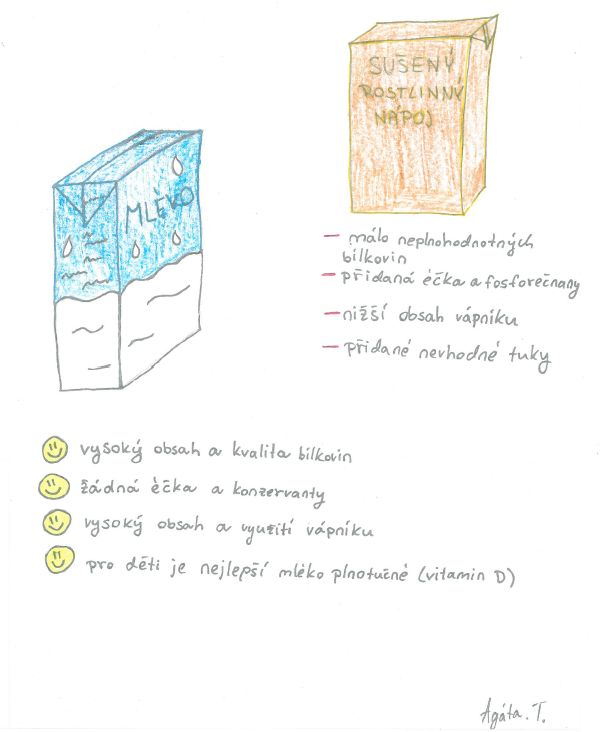 SUŠENÝ
ROSTLINNÝ
NÁPOJ
MLÉKO
– málo neplnohodnotných
bílkovin
– přidaná éčka a fosforečnany
– nižší obsah vápníku
– přidané nevhodné tuky
vysoký obsah a kvalita bílkovin
žádná éčka a konzervanty
vysoký obsah a využití vápníku
pro děti je nejlepší mléko plnotučné (vitamin D)
Agáta. T.